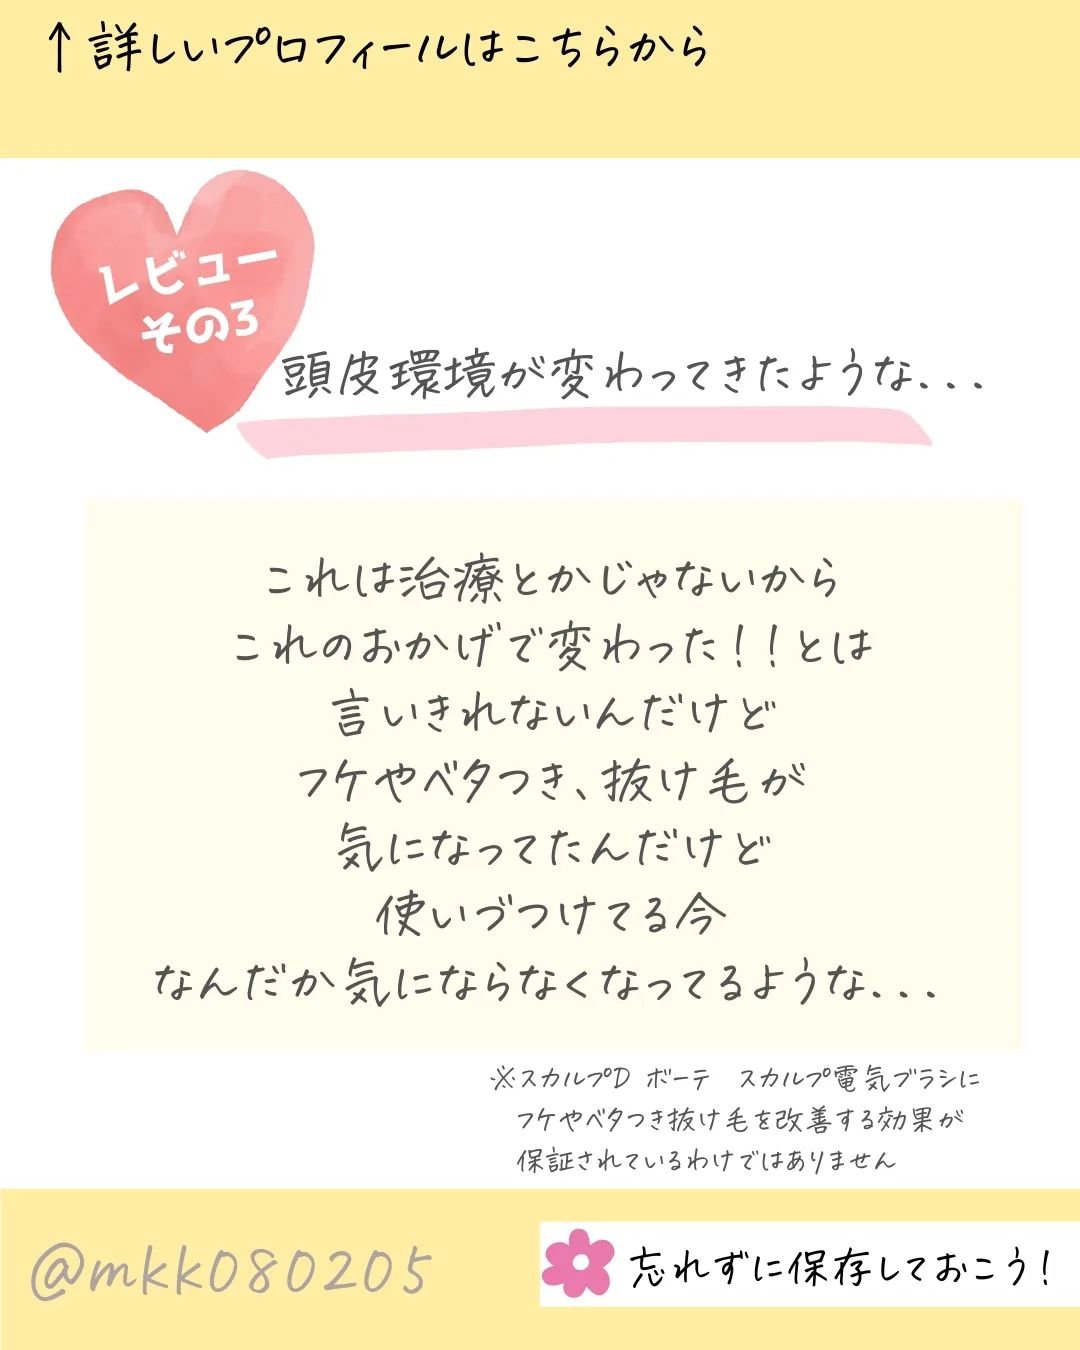 ↑詳しいプロフィールはこちらから
レビュー
その3
頭皮環境が変わってきたような...
これは治療とかじゃないから
これのおかげで変わった!!とは
言いきれないんだけど
フケやベタつき、抜け毛が
気になってたんだけど
使いづつけてる今
なんだか気にならなくなってるような...
※スカルプD ボーテ スカルプ電気ブラシに
フケやベタつき抜け毛を改善する効果が
保証されているわけではありません
@mkk080205
忘れずに保存しておこう!